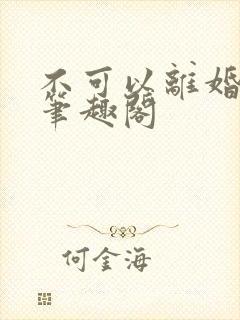 不可以離婚
筆趣閣
何金海